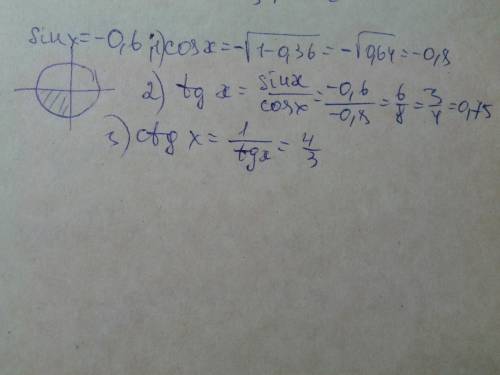 sin x = -0,6 1) cos x = -√(1-0,36) = -√0,64 = -0,8
2) tg x = sin x / cos x = -0,6 / -0,8 = 6/8 = 3/4 = 0,75
3) ctg x = 1 / tg x = 4/3